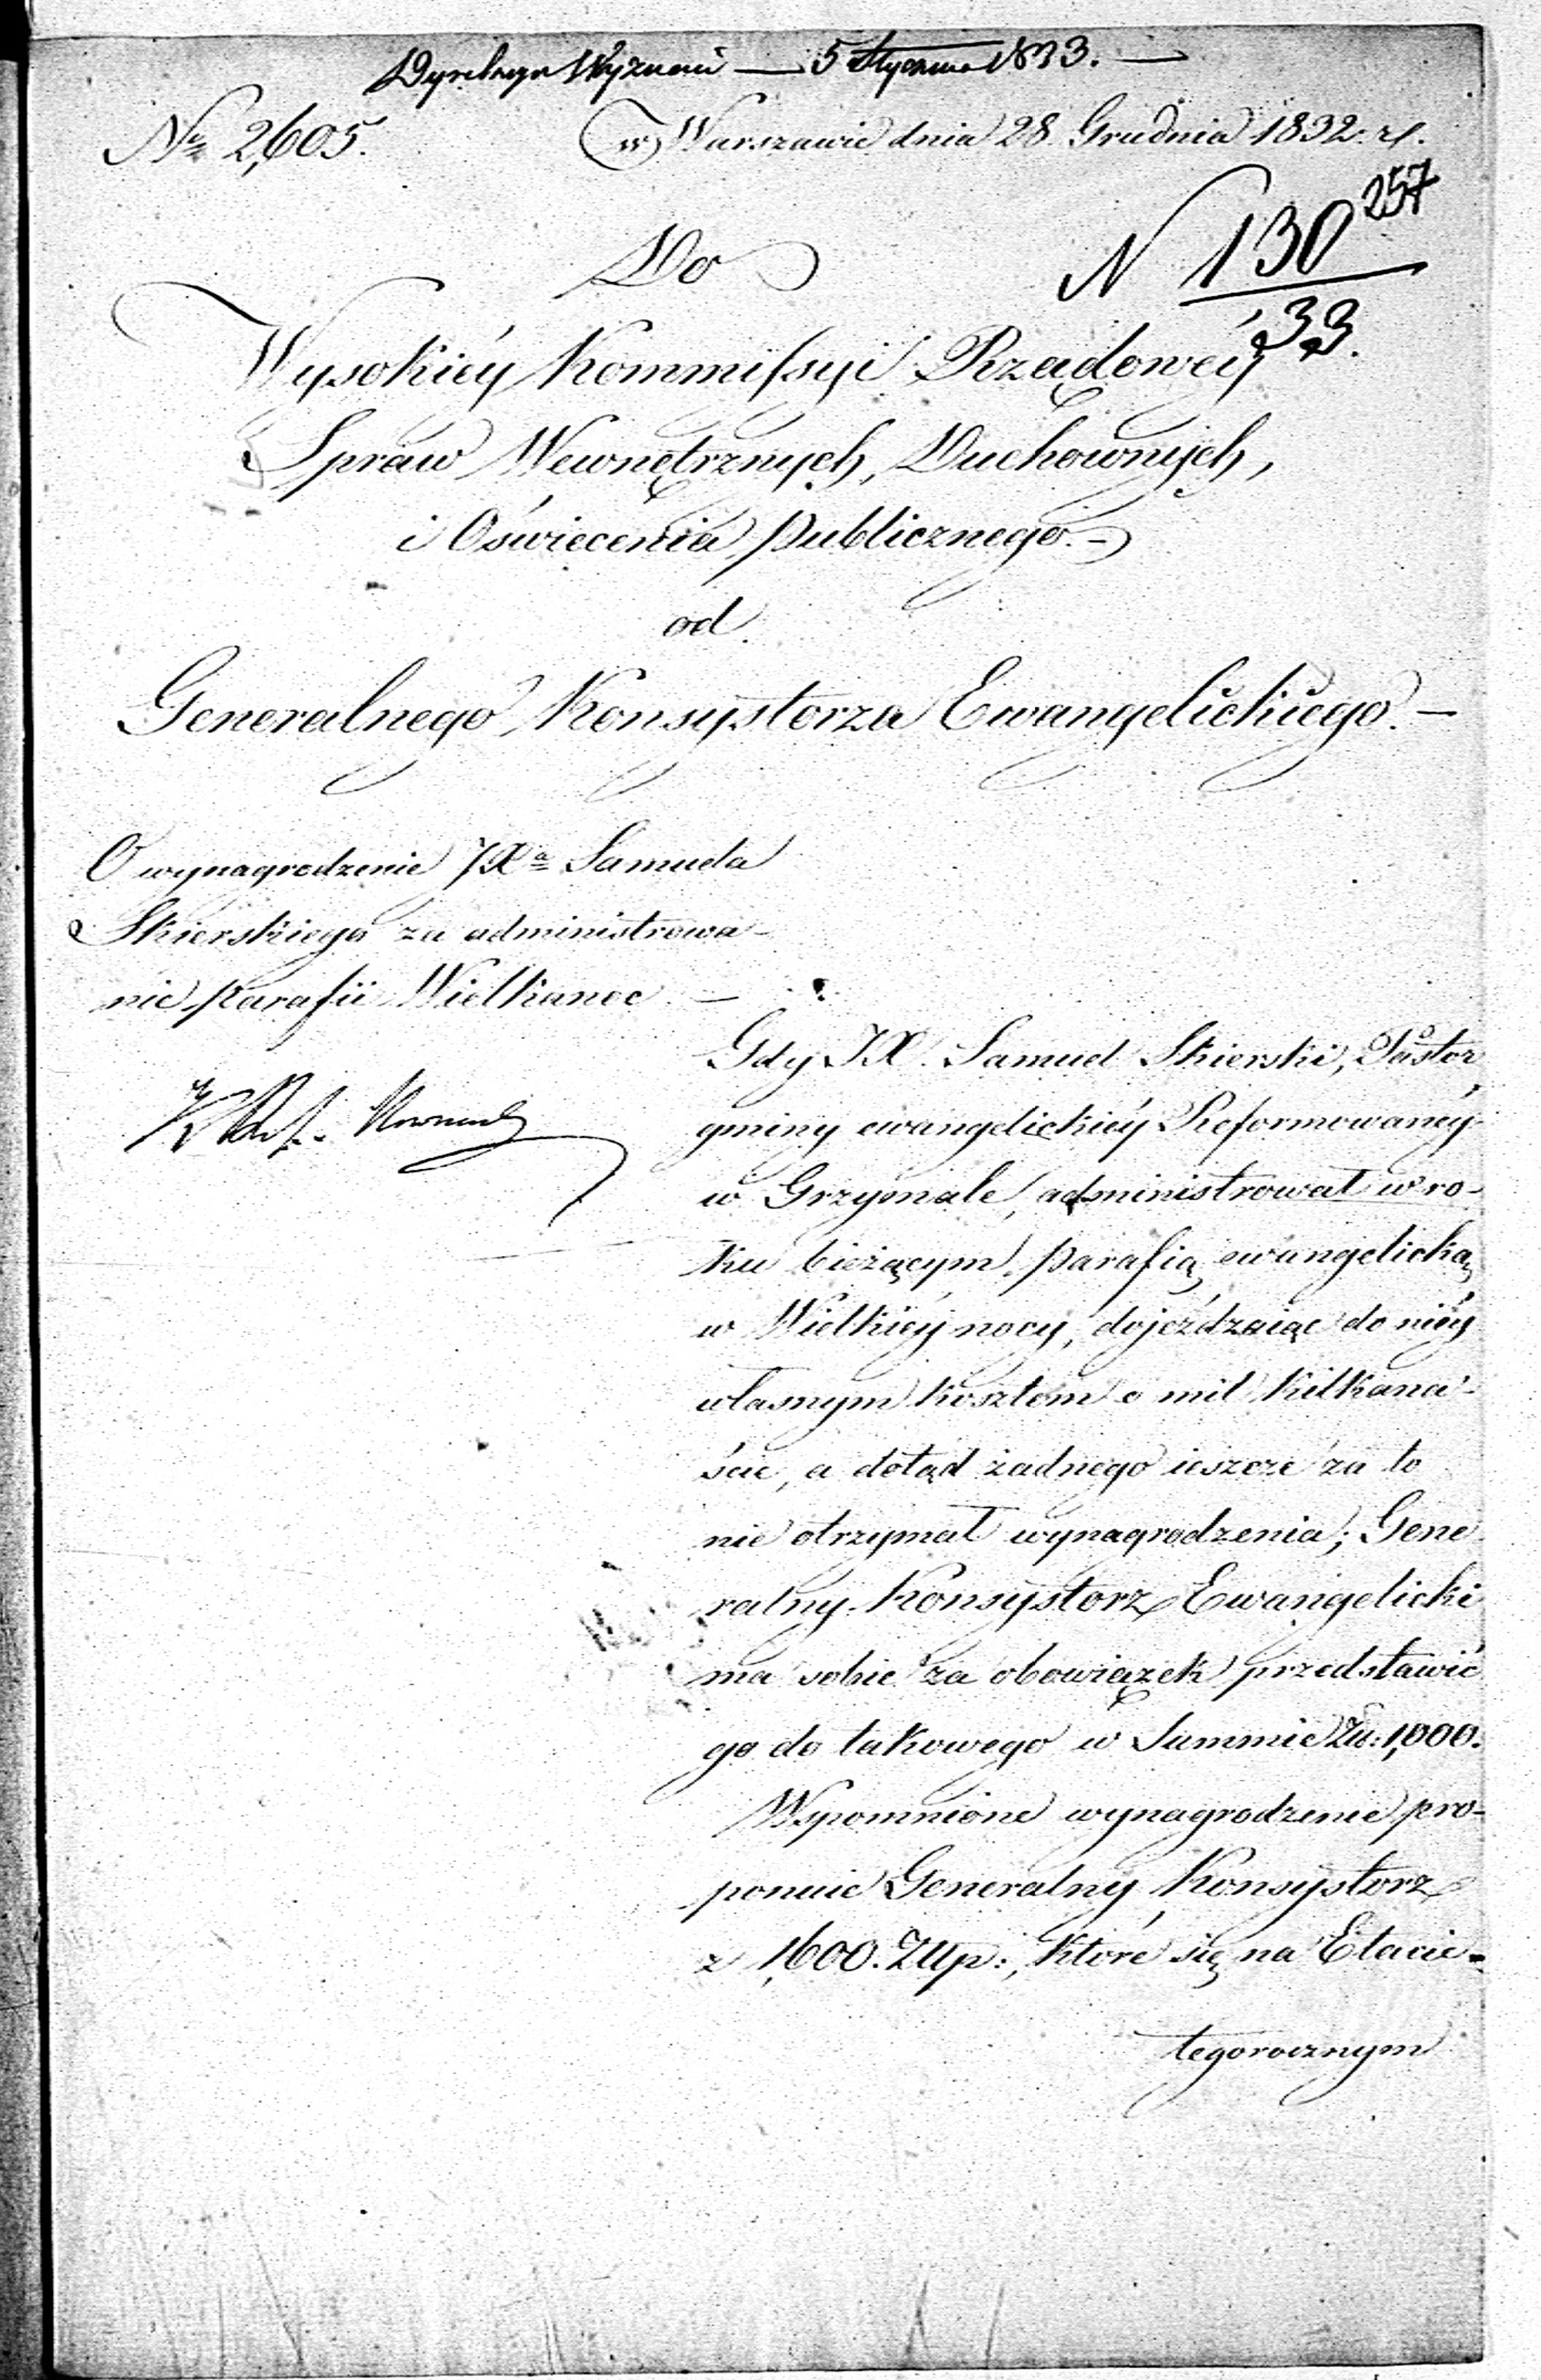 Dyrekcya Wyznań — 5 Stycznia 1833. —
No 2,605.
w Warszawie dnia 28 Grudnia 1832. r.
257
N 130
33.
Do
Wysokiéy Kommissyi Rządowéy
Spraw Wewnętrznych, Duchownych,
i Oświecenia Publicznego. -
od
Generalnego Konsystorza Ewangelickiego. —
O wynagrodzenie JXa Samuela
Skierskiego za administrowa-
nie parafii Wielkanoc. —
Gdy JX. Samuel Skierski, Pastor
gminy ewangelickiéy Reformowanéy
w Grzymale, administrował w ro-
ku bieżącym, parafią ewangelicką
w Wielkiéy nocy, dojeżdżaiąc do niéy
własnym kosztem o mil kilkana-
ście, a dotąd żadnego ieszcze za to
nie otrzymał wynagrodzenia; Gene
ralny Konsystorz Ewangelicki
ma sobie za obowiązek przedstawić
go do takowego w Summie Złp: 1,000.
Wspomnione wynagrodzenie pro-
ponuie Generalny Konsystorz
z 1,600. Złp:, które się na Etacie
tegorocznym